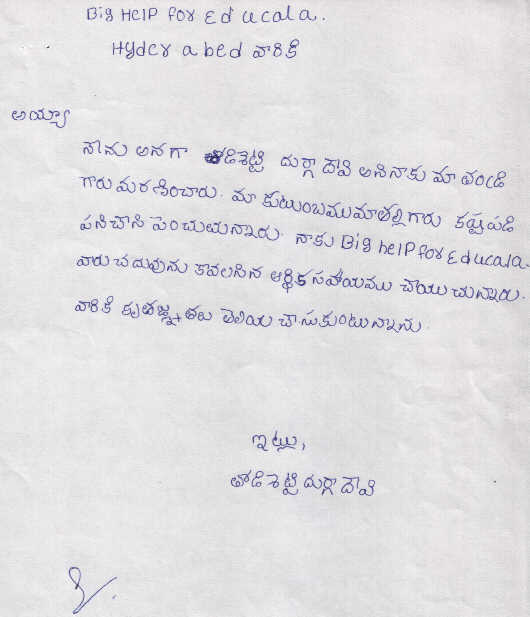 Big Help for Educala.
Hyder a bed వారికి
అయ్యా
నేను అనగా తోడిశెట్టి దుర్గా దేవి అని నాకు మా తండ్రి
గారు మరణించారు. మా కుటుంబము మా తల్లి గారు కష్టపడి
పనిచేసి పెంచుచున్నారు. నాకు Big help for Educala.
వారు చదువును కావలసిన ఆర్థిక సహాయము చేయు చున్నారు.
వారికి కృతజ్ఞతలు తెలియ చేసుకుంటున్నాను.
ఇట్లు,
తోడిశెట్టి దుర్గా దేవి